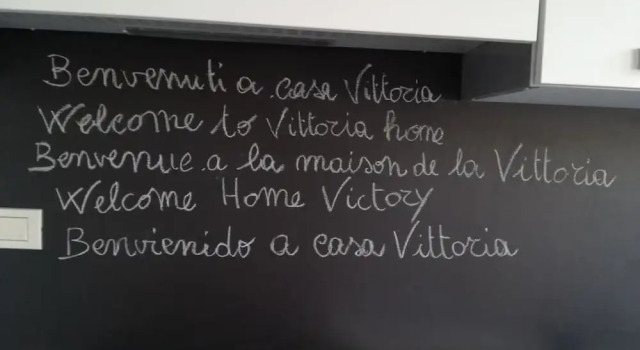 Benvenuti a casa Vittoria
Welcome to Vittoria home
Benvenue a la maison de la Vittoria
Welcome Home Victory
Benvienido a casa Vittoria